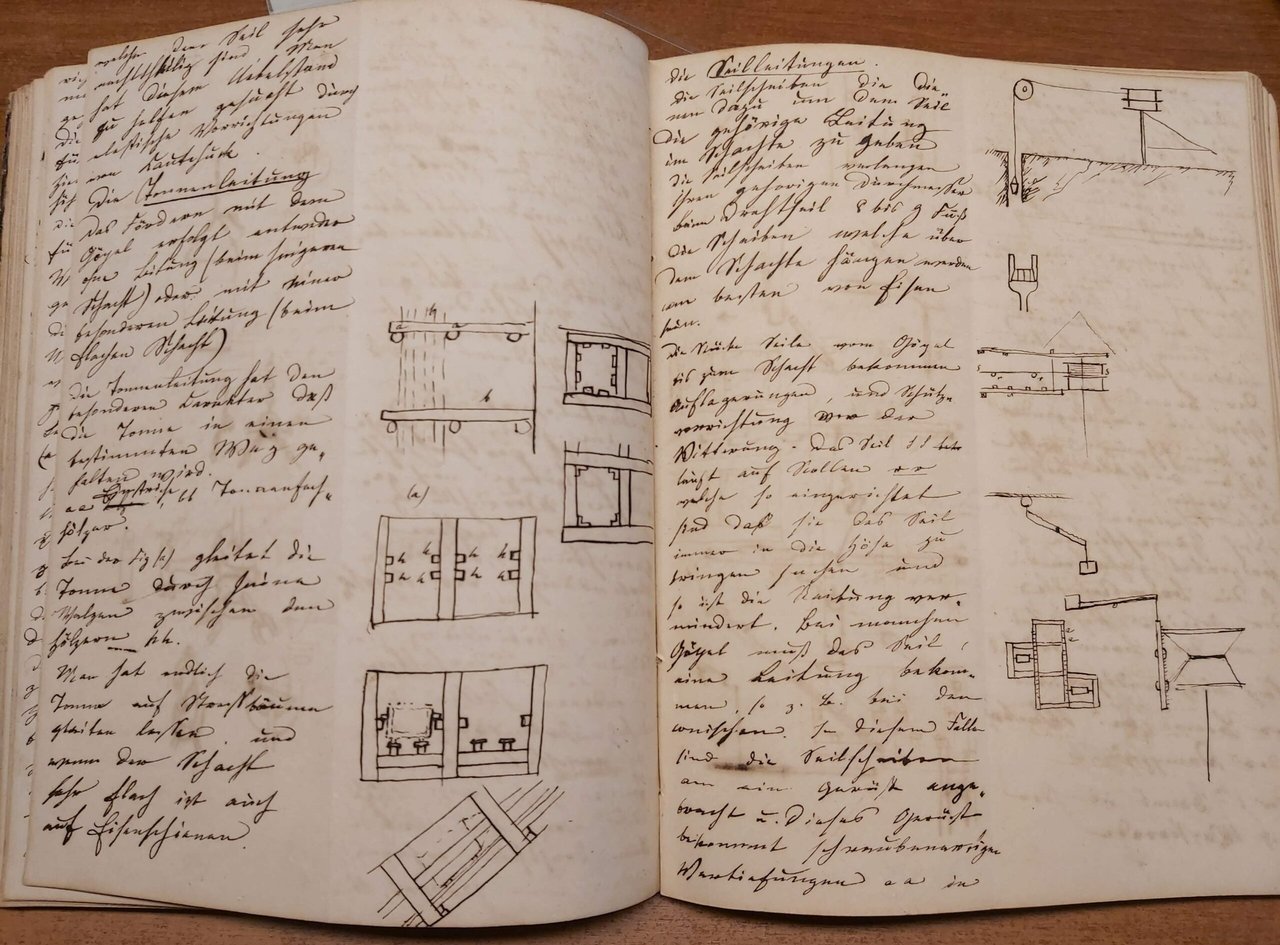 welche dem Seil sehr
nachtheilig sind. Man
hat diesem Uebelstand
zu helfen gesucht durch
elastische Vorrichtungen
von Kautschuk.
Die Tonnenleitung
Das Fördern mit dem
Göpel erfolgt entweder
ohne Leitung (beim seigeren
Schacht) oder mit einer
besonderen Leitung (beim
flachen Schacht)
Die Tonnenleitung hat den
besonderen Karakter daß
die Tonne in einem
bestimmten Weg ge-
halten wird.
aa Einstriche, bb Tonnenfach-
hölzer.
Bei der Fig (a) gleitet die
Tonne durch seine
Walzen zwischen den
Hölzern hh.
Man hat endlich die
Tonne auf Streckbäumen
gleiten lassen und
wenn der Schacht
sehr flach ist auch
auf Eisenschienen.
a
a
b
(a)
h h h h
h h h h
Die Seilleitungen.
Die Seilscheiben die die-
nen dazu um dem Seil
die gehörige Leitung
im Schachte zu geben
Die Seilscheiben verlangen
ihren gehörigen Durchmesser
beim Drahtseil 8 bis 9 Fuß
Die Scheiben welche über
dem Schachte hängen werden
am besten von Eisen
sein.
Die Stücke Seile vom Göpel
bis zum Schacht bekommen
Auflagerungen, und Schutz-
vorrichtung vor der
Witterung. Das Seil ss
läuft auf Rollen rr
welche so eingerichtet
sind daß sie das Seil
immer in die Höhe zu
bringen suchen und
so ist die Reibung ver-
mindert. Bei manchen
Göpel muß das Seil
eine Leitung bekom-
men, so z. B. bei den
conischen. In diesem Falle
sind die Seilscheiben
an ein Gerüst ange-
bracht u. dieses Gerüst
bekommt schraubenartige
Vertiefungen aa in